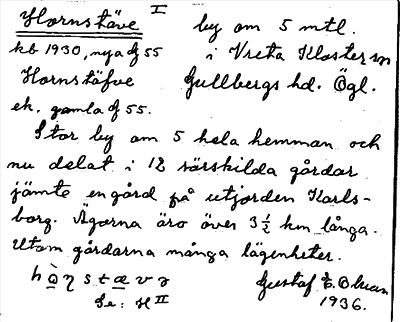 Hornstäve I by om 5 mtl.
kb 1930, nya J 55 i Vreta Kloster sn
Hornstäfve Gullbergs hd. Ögl.
ek. gamla J 55.
Stor by om 5 hela hemman och
nu delat i 12 särskilda gårdar
jämte en gård på utjorden Karls-
borg. Ägorna äro över 3 1/2 km långa.
Utom gårdarna många lägenheter.
Gustaf E.
Se: H II 1936.